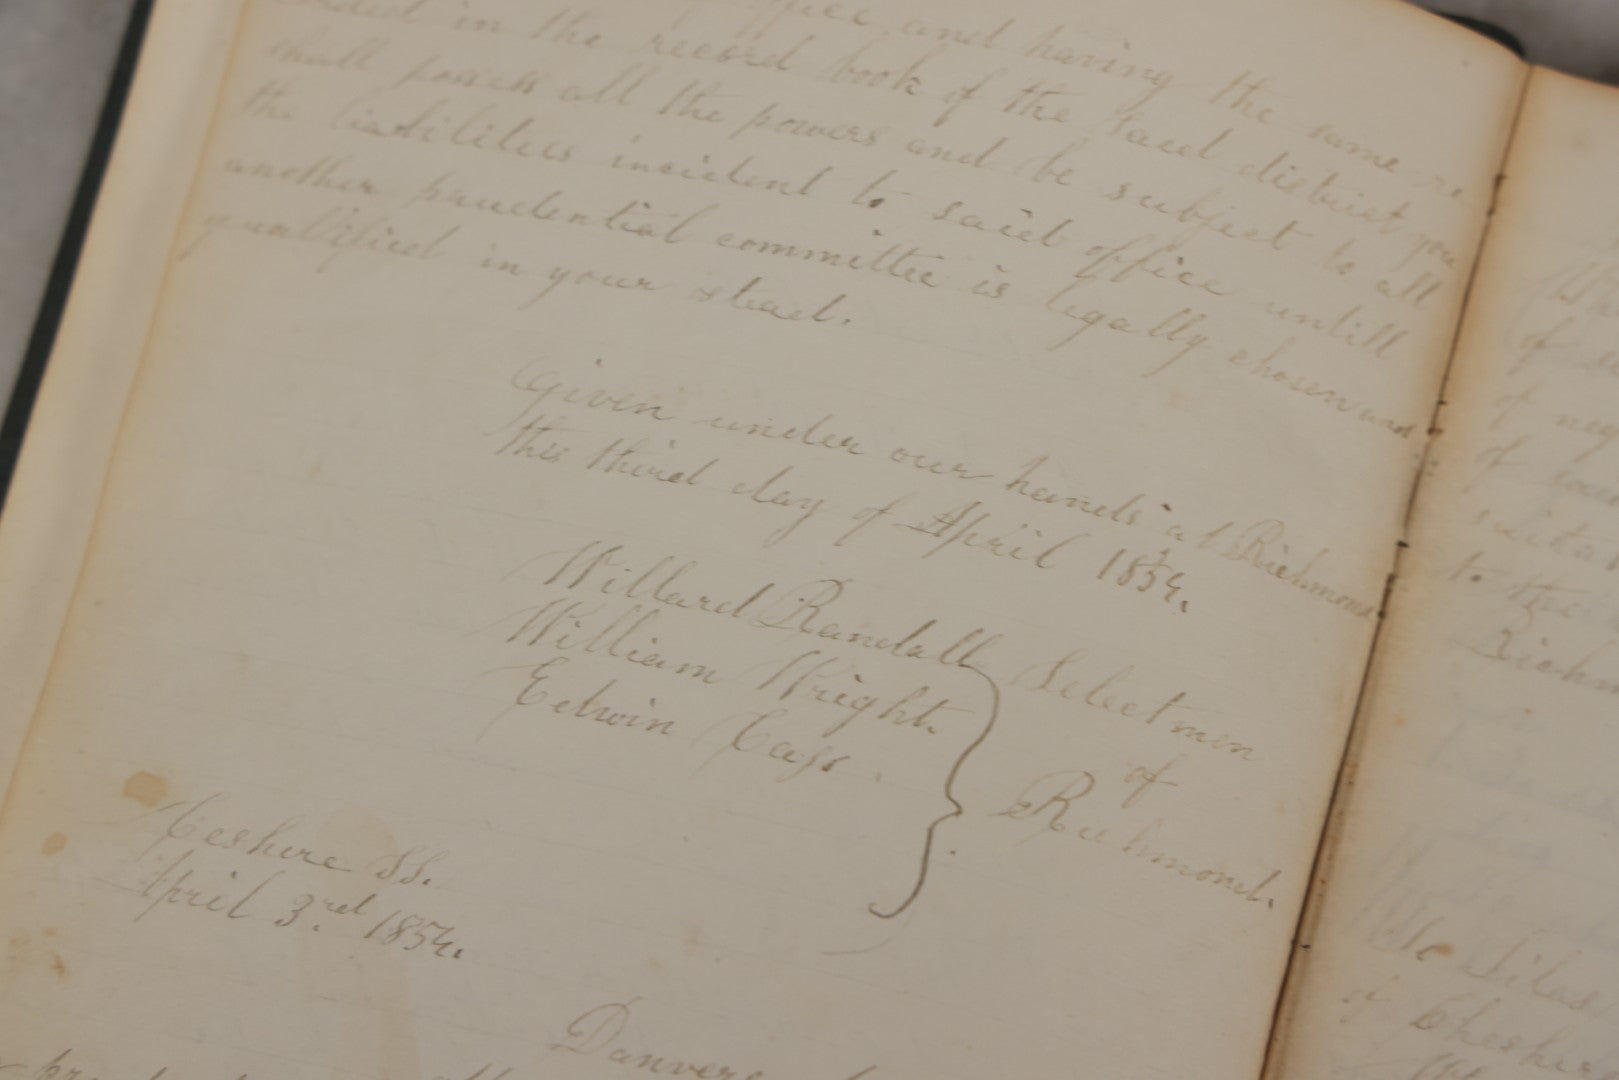 office and having the same re
corded in the record book of the said district you
shall possess all the powers and be subject to all
the liabilities incident to said office untill
another prudential committee is legally chosen and
qualified in your stead.
Given under our hands at Richmond
this third day of April 1854.
Willard Randall
William Wright.
Edwin Cass.
Selectmen
of
Richmond.
Ceshire SS.
April 3rd. 1854.
Danvers
of
of neg
of
to the
Richm
Silas
of Cheshir